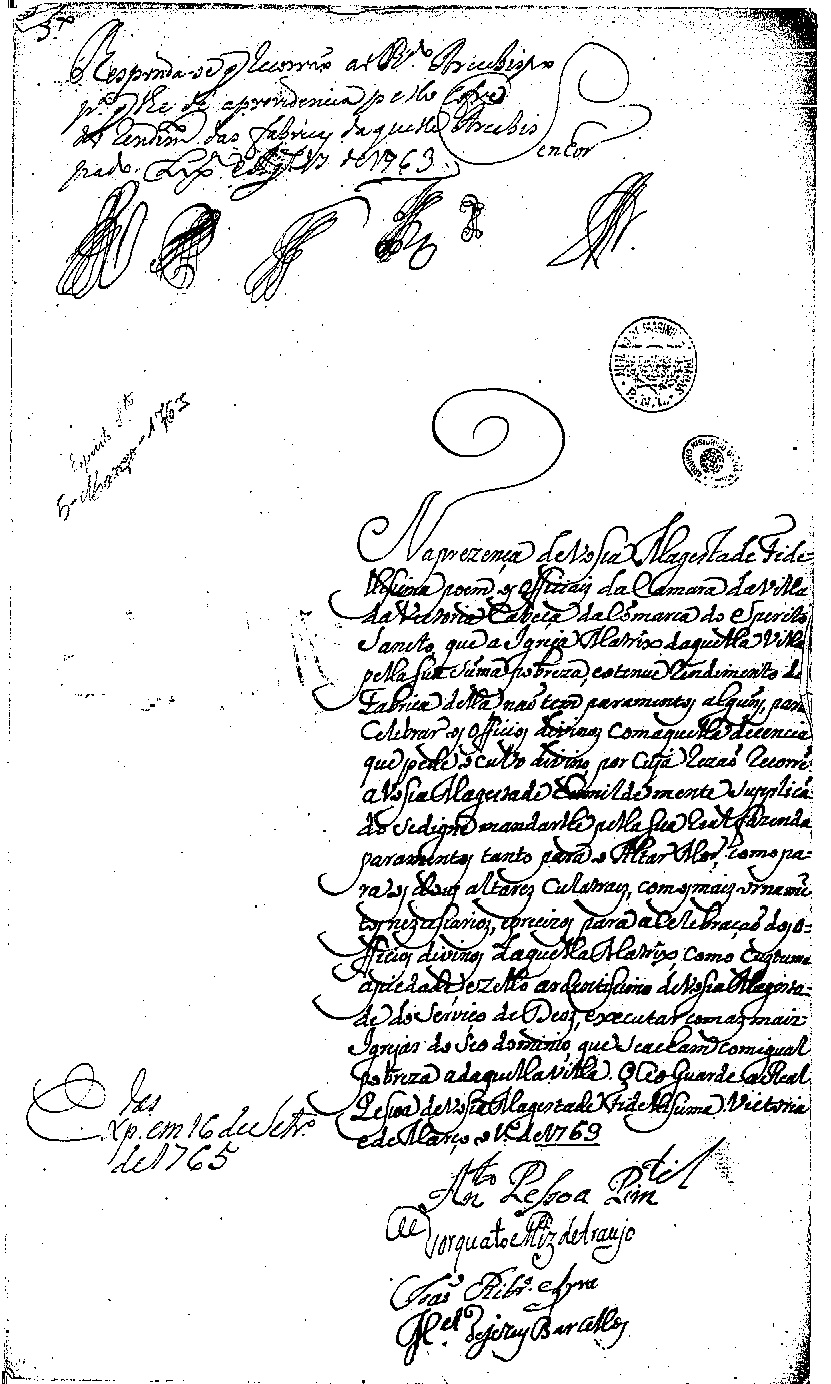 Responda-se q̃ Recorrão ao Rdo Arcebispo
pa q̃ lhe dê a providencia pello Cofre
do Rendimto das fabricas daquelle Arcebis
pado. Lxa 17 de 1763.
Senhor
Espirito Sto
5 - Março - 1763
Na prezença de Vossa Magestade Fide-
llissima poem os officiais da Camara da Villa
da Victoria Cabeça da Comarca do Espirito
Sancto, que a Igreja Matrix daquella Villa
pella sua suma pobreza, e tenue Rendimento da
Fabrica della não tem paramentos alguns, para
Celebrar os officios divinos com aquella decencia
que pede o culto divino por cuja Rezaõ Recorre
a Vossa Magestade humildemente supplicã
do se digne mandarlhe pella sua Real fazenda
paramentos tanto para o Altar Mor, como pa-
ra os dous altares Culatrais, com os mais ornamẽ
tos neçeçarios, e precizos para a Celebraçaõ dos o-
fficios divinos daquella Matrix, como Custuma
a piedade, e zello ardentissimo de Vossa Magesta-
de do Serviço de Deos, executar com as mais
Igrejas do seo dominio, que se acham com igual
pobreza a daquella Villa. Deos Guarde a Real
Pesoa de Vossa Magestade Fidellissima. Victoria
e de Março o 1º de 1763
Anto Pesoa Pimtel
Torquato Miz de Araujo
Franco Ribro. Lyra
Mel. de Jesus Barcellos
das
Exp. em 16 de Setro.
de 1765